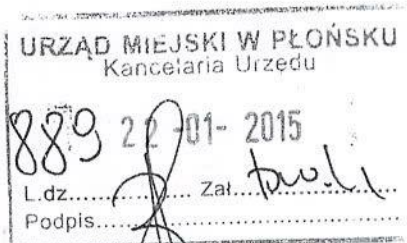 URZĄD MIEJSKI W PŁOŃSKU
Kancelaria Urzędu
889 22 -01- 2015
L.dz............... Zał.
Podpis..............................